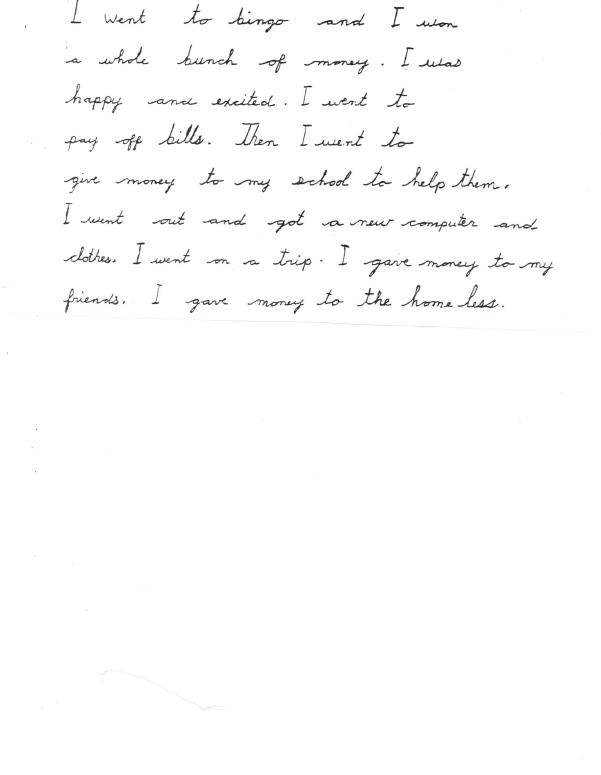 I went to bingo and I won
a whole bunch of money. I was
happy and excited. I went to
pay off bills. Then I went to
give money to my school to help them.
I went out and got a new computer and
clothes. I went on a trip. I gave money to my
friends. I gave money to the home less.